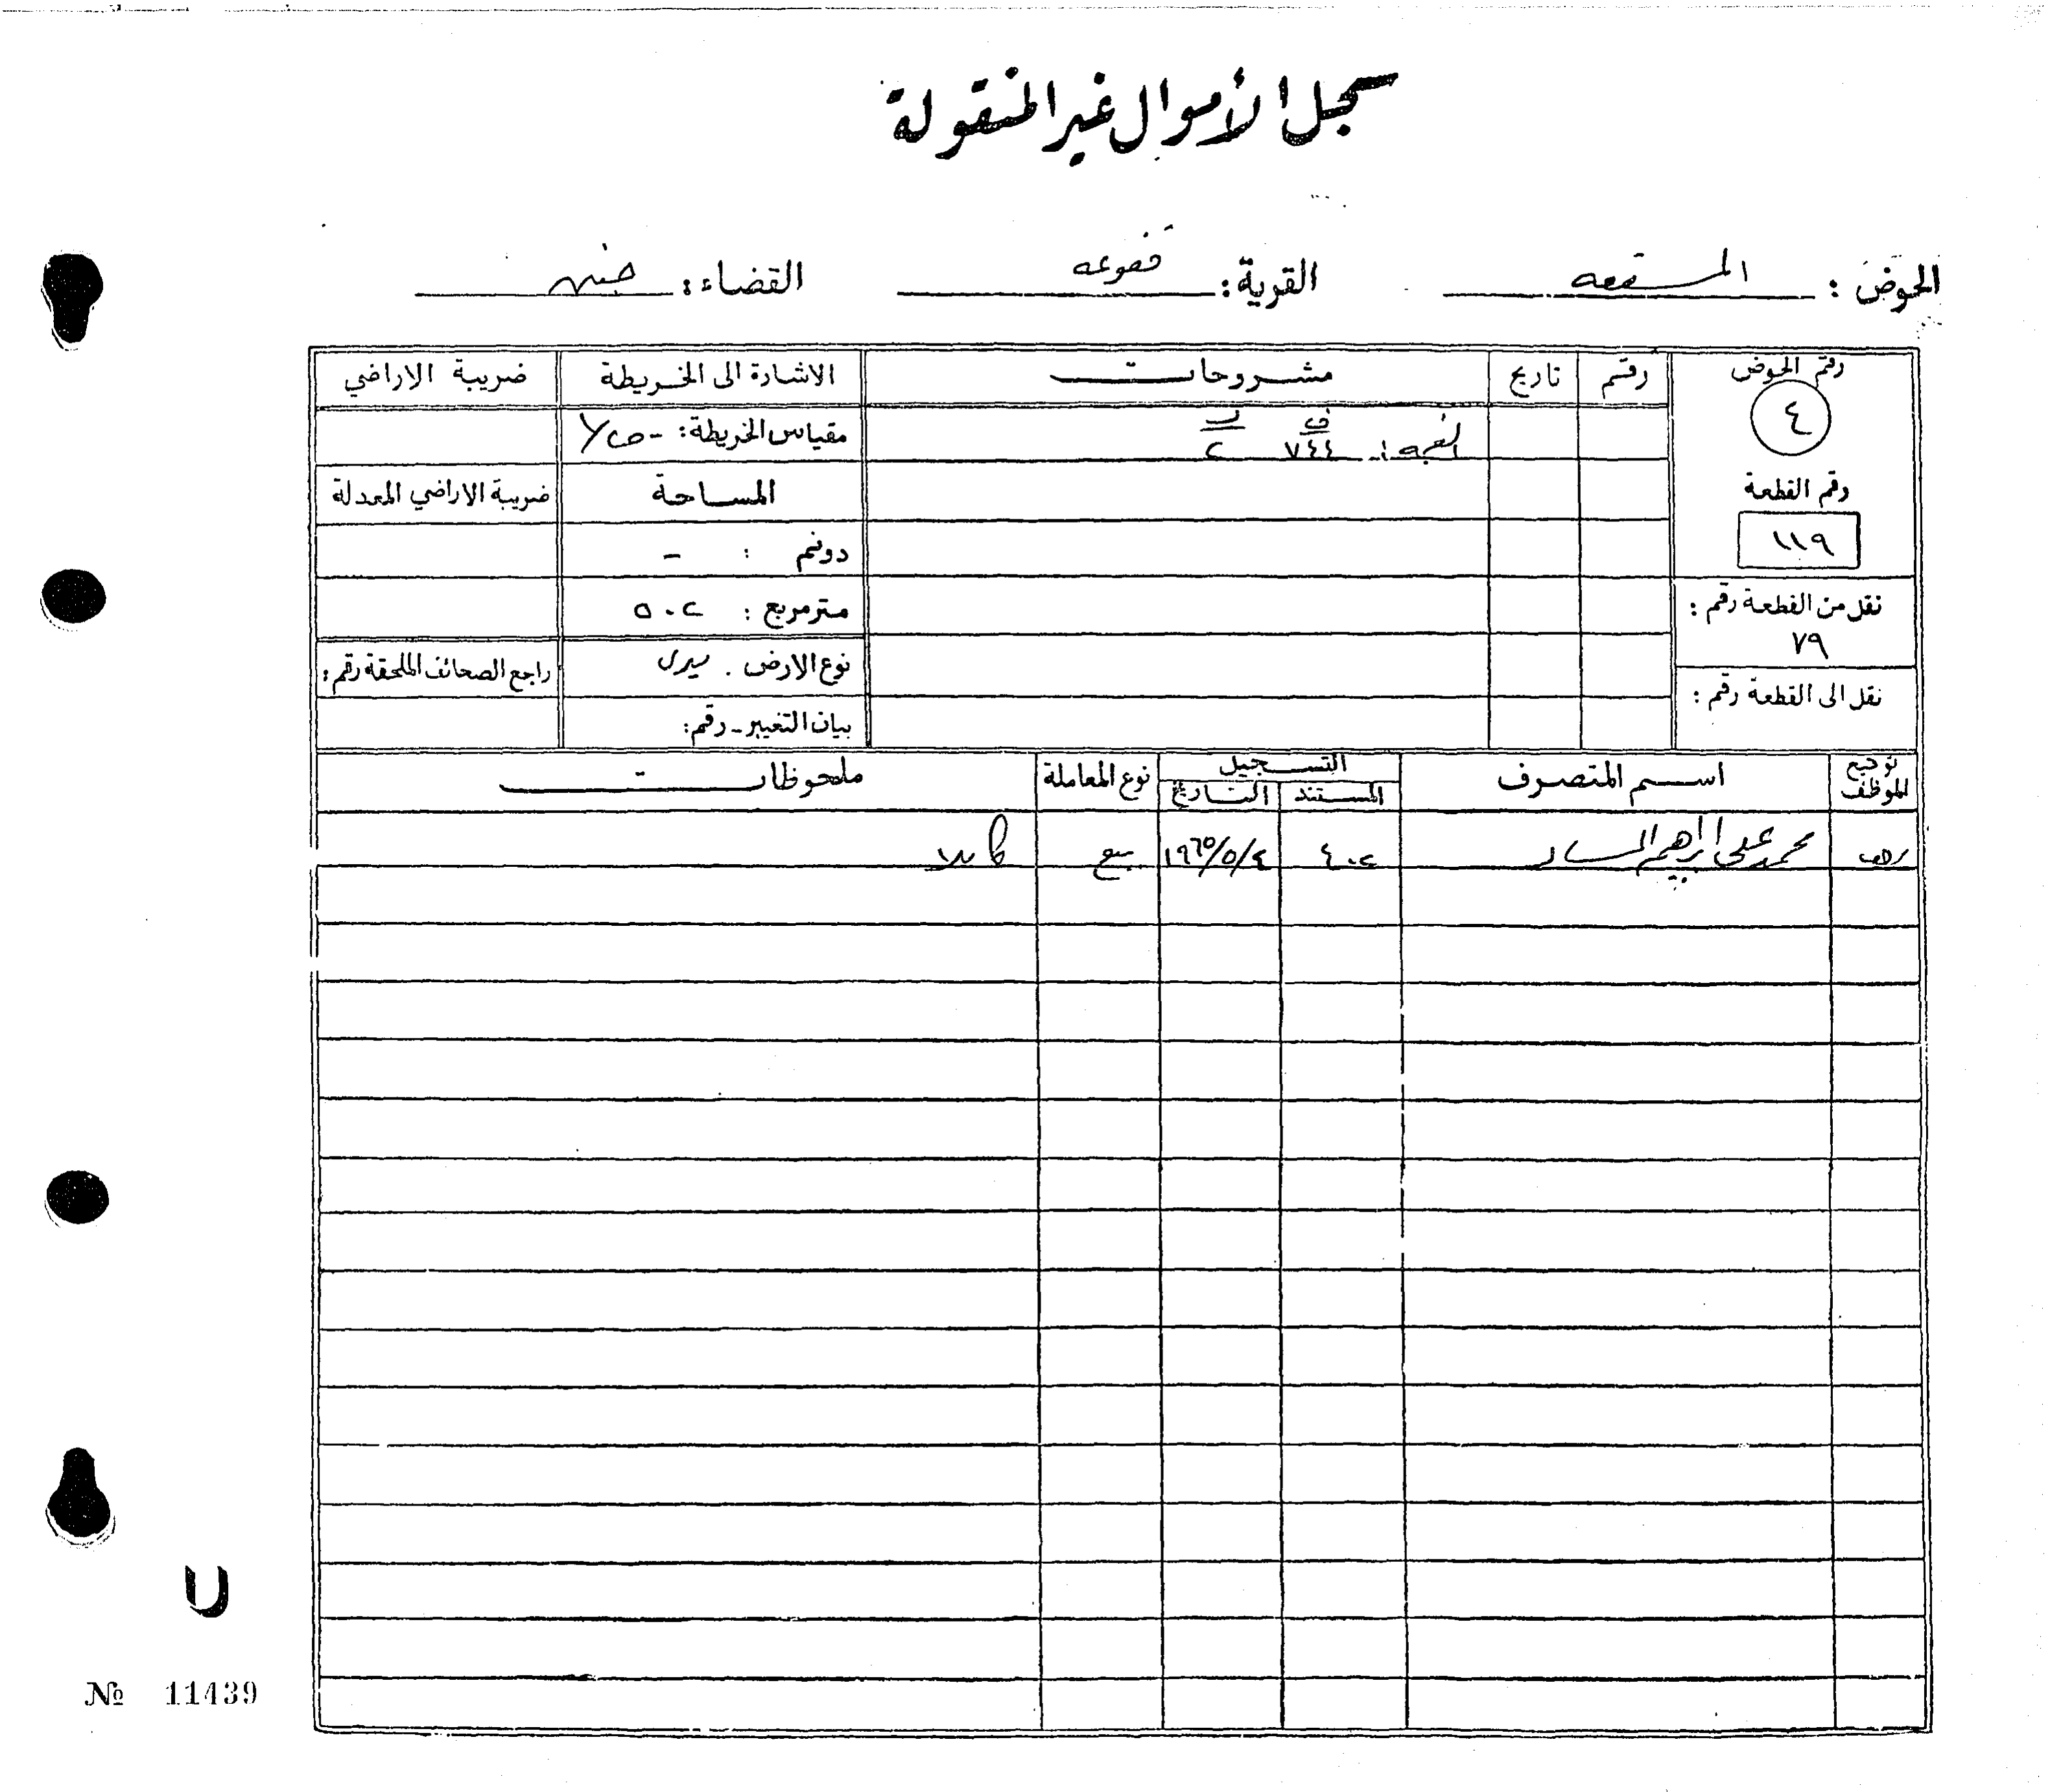 سجل الأموال غير المنقولة
الحوض : القرية: فقوعه القضاء: جنين
رقم الحوض رقم تاريخ مشروحات الاشارة الى الخريطة ضريبة الاراضي
٤ ف ل
٧٤٤ ٢ مقياس الخريطة:
رقم القطعة المساحة ضريبة الاراضي المعدلة
١١٩ دونم : -
نقل من القطعة رقم : مترمربع : ٥٠٢
٧٩ نوع الارض . ميري راجع الصحائف الملحقة رقم :
نقل الى القطعة رقم : بيان التغيير - رقم:
توقيع الموظف اسم المتصرف التسجيل نوع المعاملة ملحوظات
المستند التاريخ
محمد علي ابراهيم ٤٠٢ ١٩٦٥/٥/٤ بيع كاملا
№ 11439